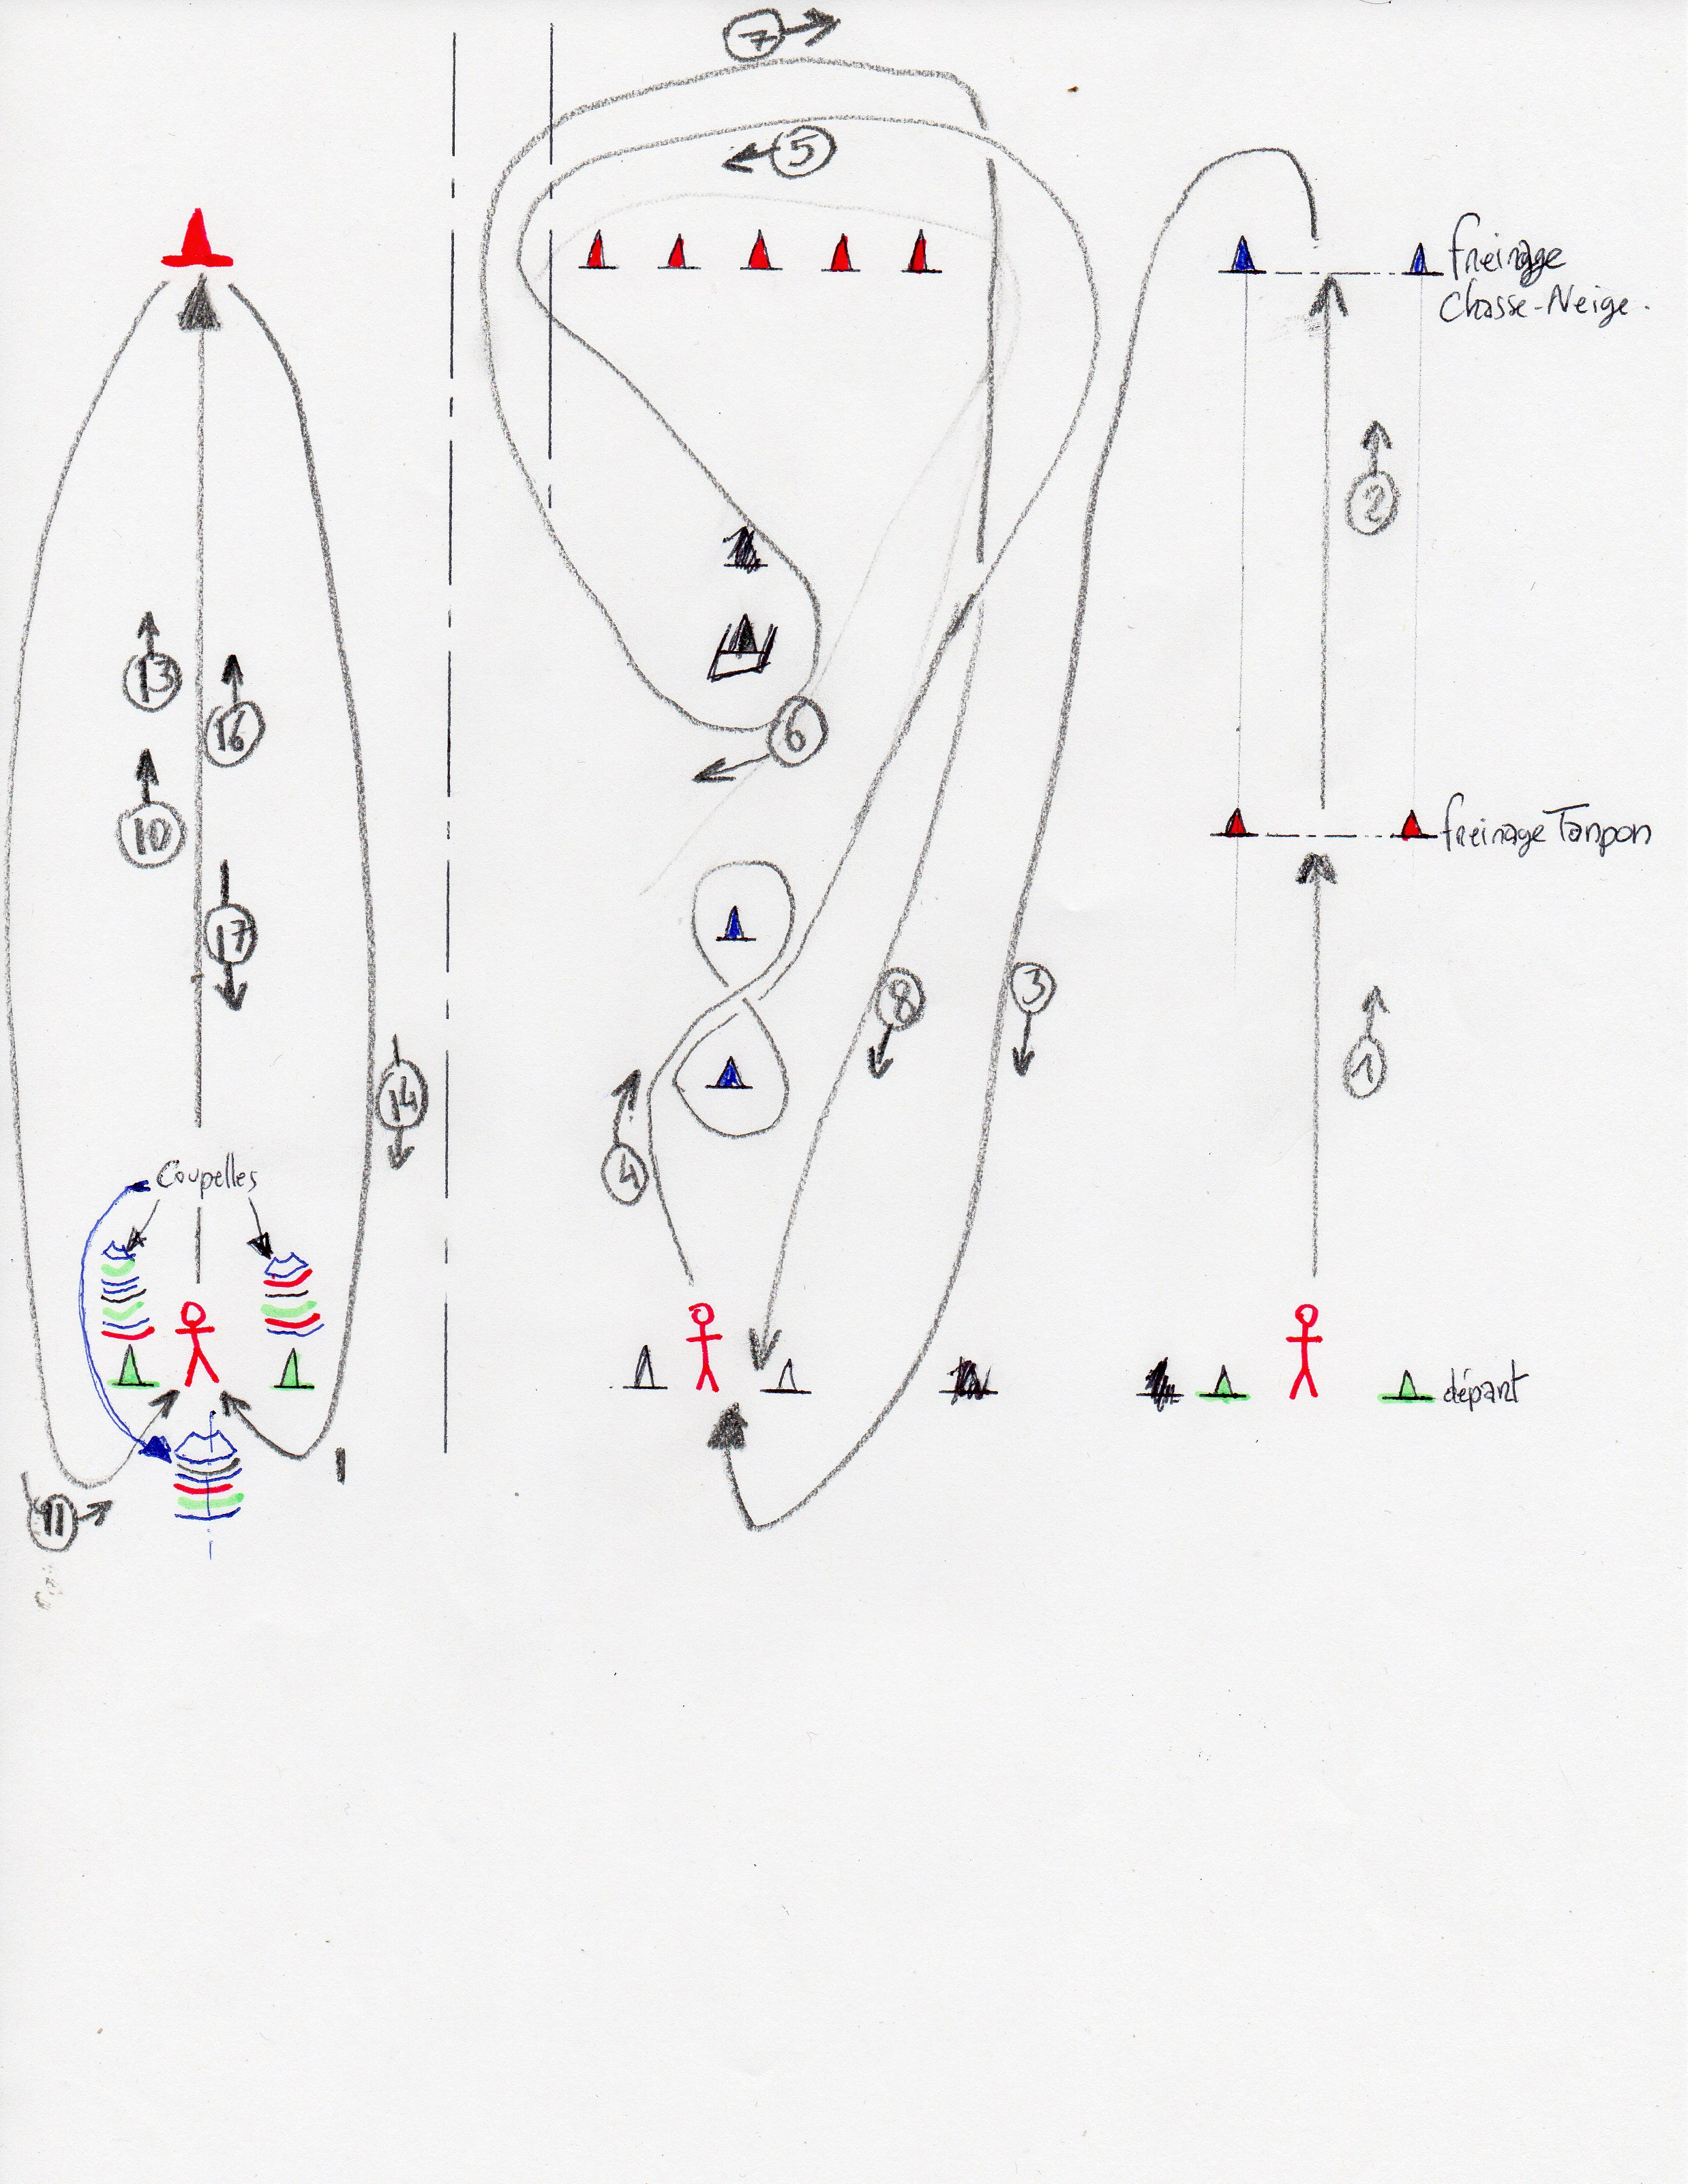 7
5
freinage
Chasse-Neige.
2
13
16
6
10
freinage Tanpon
17
8
3
1
14
4
Coupelles
départ
11